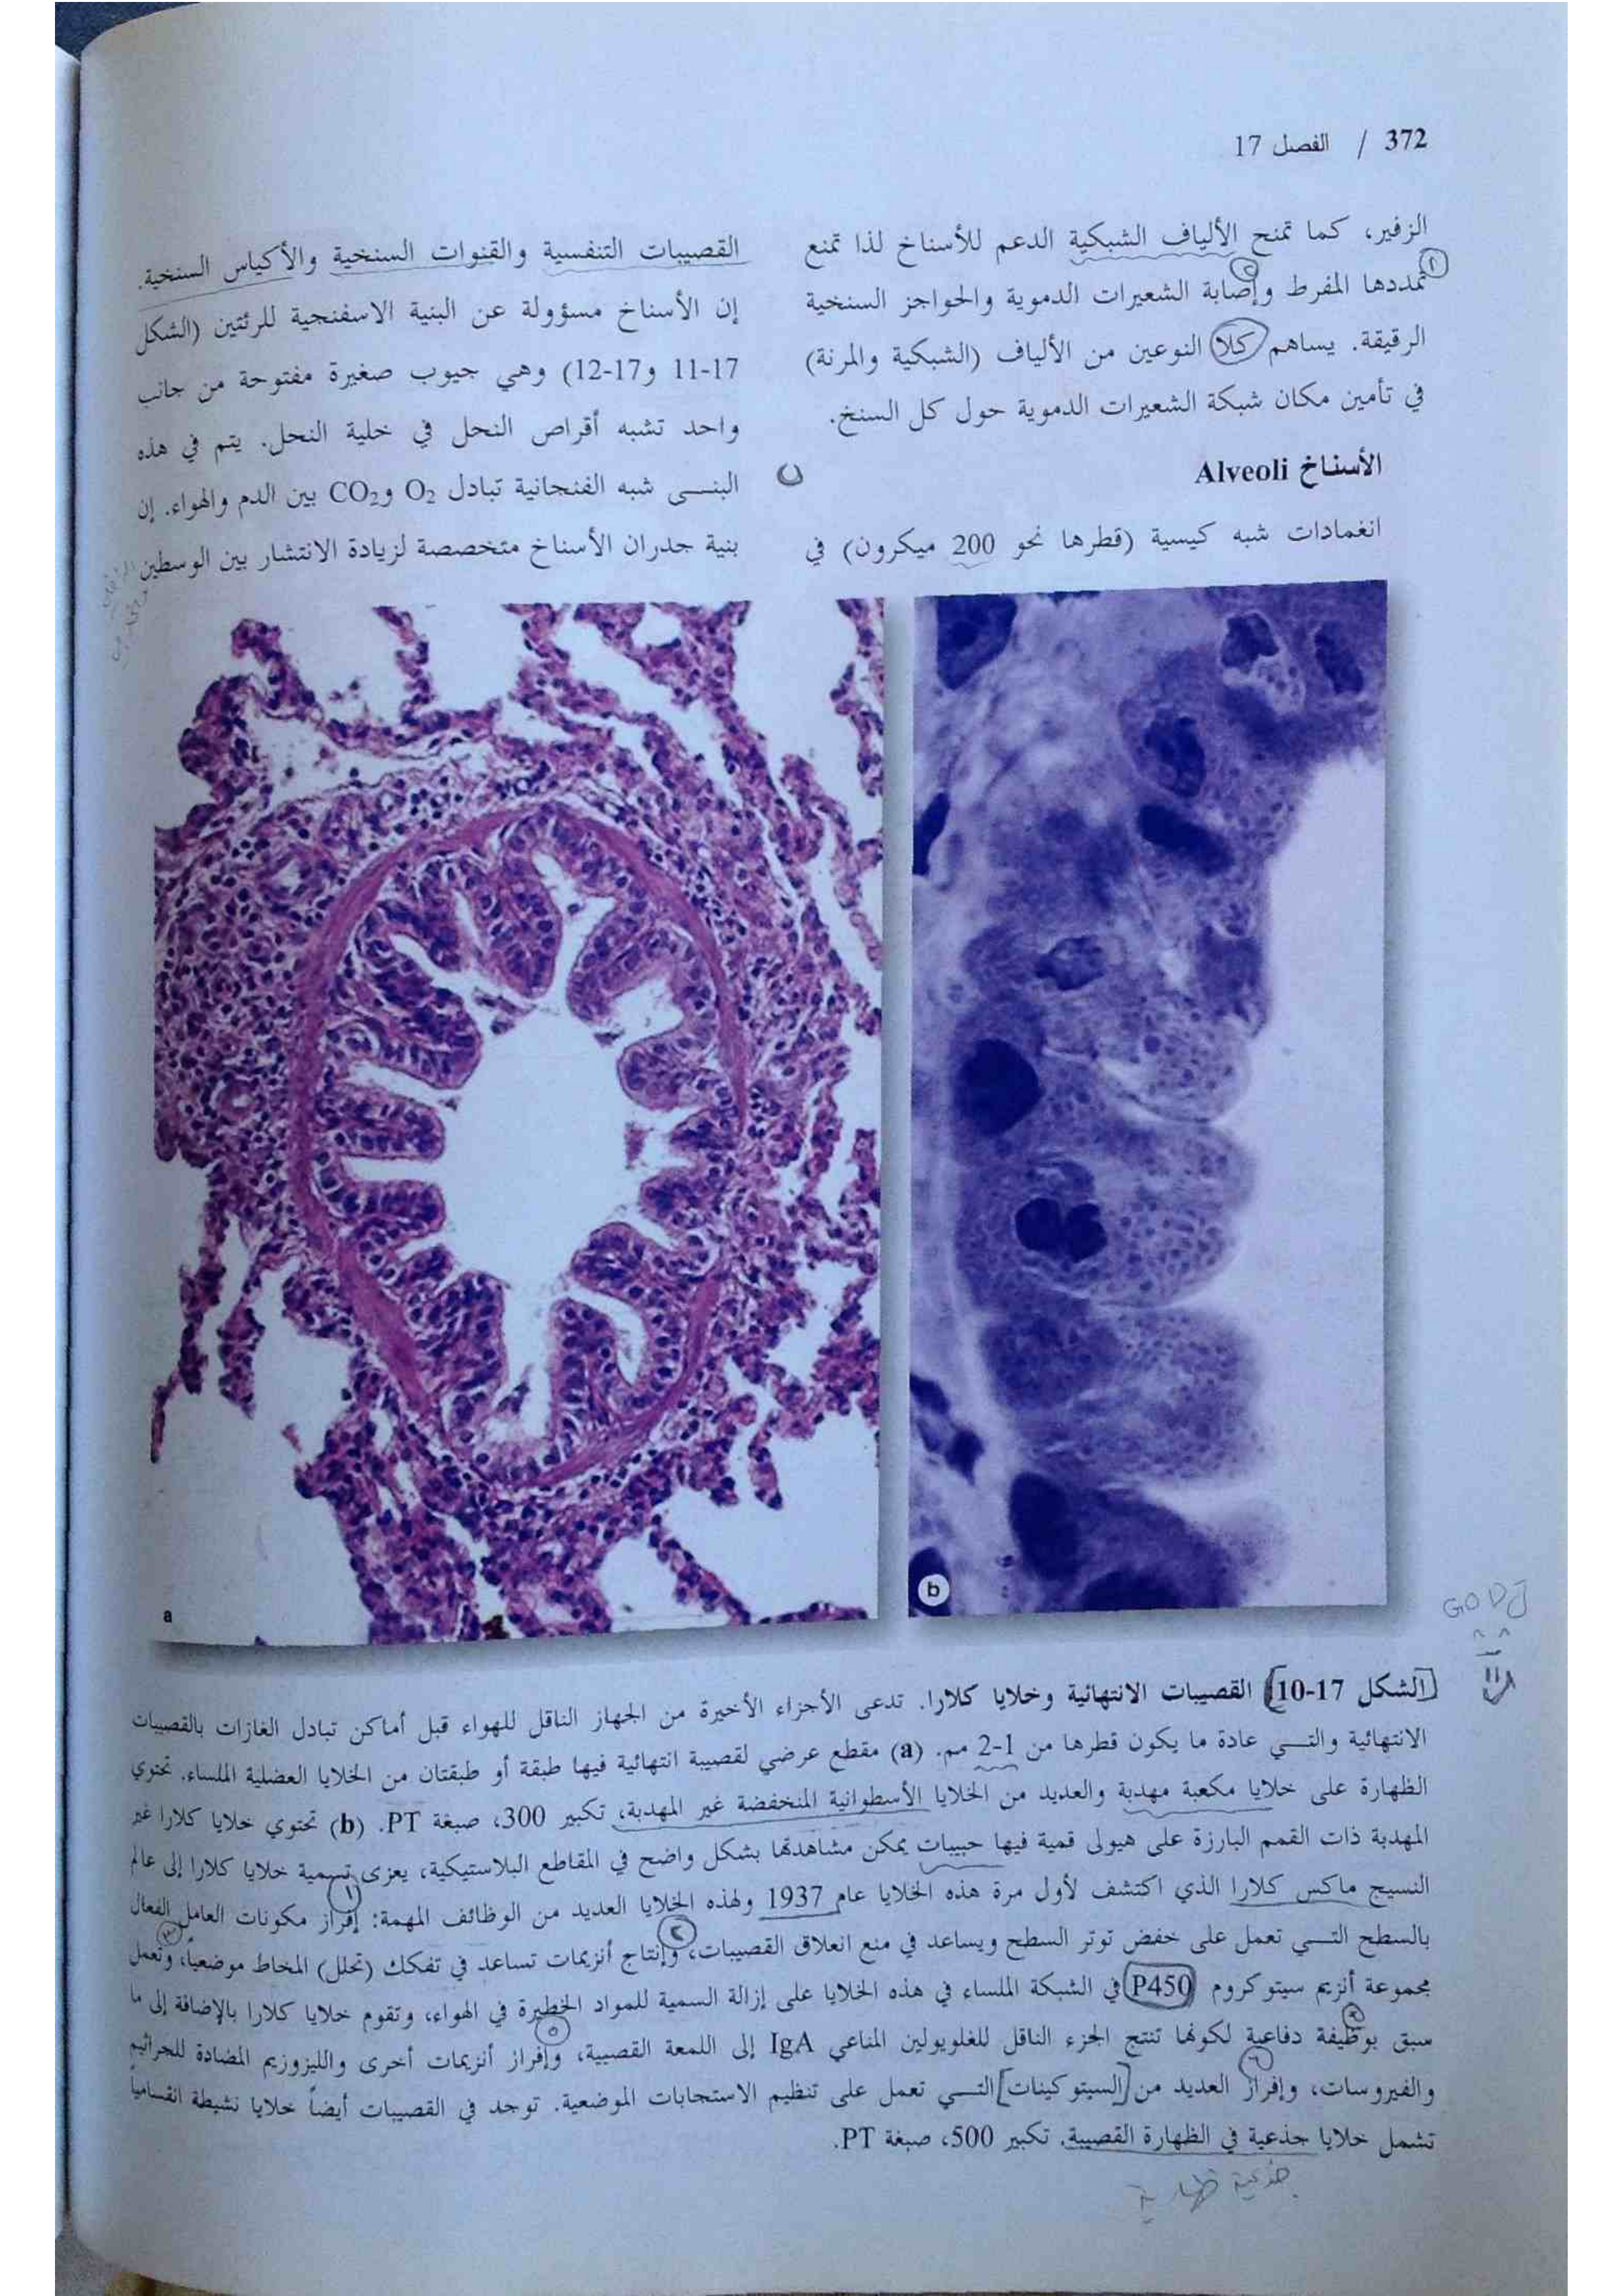 372 / الفصل 17
الزفير، كما تمنح الألياف الشبكية الدعم للأسناخ لذا تمنع
تمددها المفرط وإصابة الشعيرات الدموية والحواجز السنخية
الرقيقة. يساهم كلا النوعين من الألياف (الشبكية والمرنة)
في تأمين مكان شبكة الشعيرات الدموية حول كل السنخ.
الأسناخ Alveoli
انغمادات شبه كيسية (قطرها نحو 200 ميكرون) في
القصيبات التنفسية والقنوات السنخية والأكياس السنخية.
إن الأسناخ مسؤولة عن البنية الاسفنجية للرئتين (الشكل
17-11 و17-12) وهي جيوب صغيرة مفتوحة من جانب
واحد تشبه أقراص النحل في خلية النحل. يتم في هذه
البنــى شبه الفنجانية تبادل O2 وCO2 بين الدم والهواء. إن
بنية جدران الأسناخ متخصصة لزيادة الانتشار بين الوسطين
a
b
GODJ
الشكل 17-10 القصيبات الانتهائية وخلايا كلارا. تدعى الأجزاء الأخيرة من الجهاز الناقل للهواء قبل أماكن تبادل الغازات بالقصيبات
الانتهائية والتــي عادة ما يكون قطرها من 1-2 مم. (a) مقطع عرضي لقصيبة انتهائية فيها طبقة أو طبقتان من الخلايا العضلية الملساء. تحتوي
الظهارة على خلايا مكعبة مهدبة والعديد من الخلايا الأسطوانية المنخفضة غير المهدبة، تكبير 300، صبغة PT. (b) تحتوي خلايا كلارا غير
المهدبة ذات القمم البارزة على هيولى قمية فيها حبيبات يمكن مشاهدتها بشكل واضح في المقاطع البلاستيكية، يعزى تسمية خلايا كلارا إلى عالم
النسيج ماكس كلارا الذي اكتشف لأول مرة هذه الخلايا عام 1937 ولهذه الخلايا العديد من الوظائف المهمة: إفراز مكونات العامل الفعال
بالسطح التــي تعمل على خفض توتر السطح ويساعد في منع انغلاق القصيبات، وإنتاج أنزيمات تساعد في تفكك (تحلل) المخاط موضعياً، وتعمل
مجموعة أنزيم سيتوكروم P450 في الشبكة الملساء في هذه الخلايا على إزالة السمية للمواد الخطيرة في الهواء، وتقوم خلايا كلارا بالإضافة إلى ما
سبق بوظيفة دفاعية لكونها تنتج الجزء الناقل للغلوبولين المناعي IgA إلى اللمعة القصبية، وإفراز أنزيمات أخرى والليزوزيم المضادة للجراثيم
والفيروسات، وإفراز العديد من [السيتوكينات] التــي تعمل على تنظيم الاستجابات الموضعية. توجد في القصيبات أيضاً خلايا نشيطة انقسامياً
تشمل خلايا جذعية في الظهارة القصيبة. تكبير 500، صبغة PT.
جذعية ظهارية